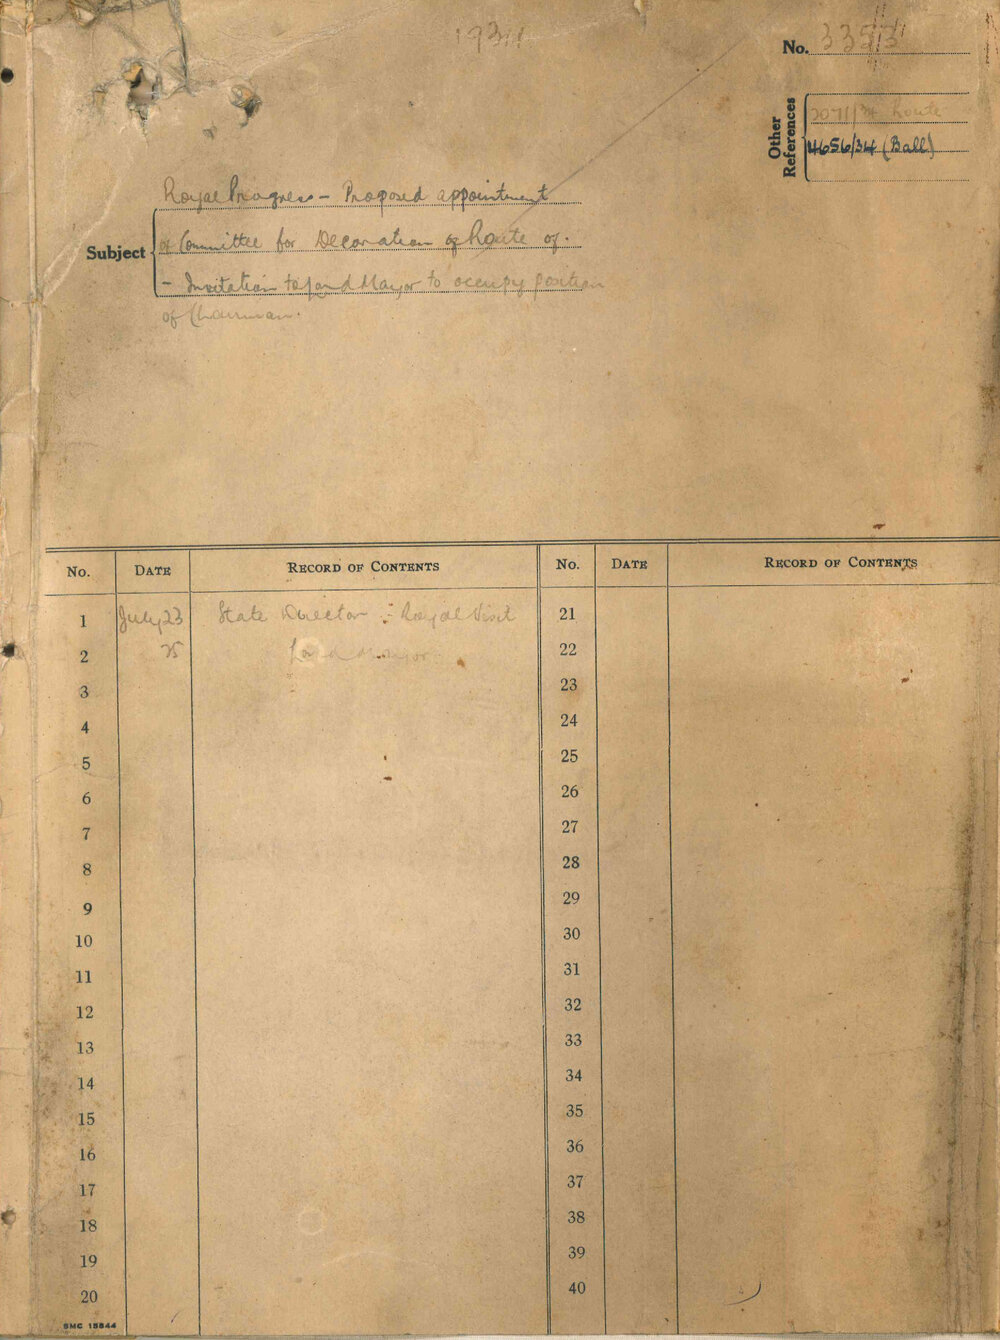 1934
No. 3353
Other References
2071/34 Route
4656/34 (Ball)
Subject
Royal Progress - Proposed appointment
of Committee for Decoration of Route of.
- Invitation to Lord Mayor to occupy position
of Chairman.
No. DATE RECORD OF CONTENTS No. DATE RECORD OF CONTENTS
1 July 23 State Director - Royal Visit 21
2 25 Lord Mayor 22
3 23
4 24
5 25
6 26
7 27
8 28
9 29
10 30
11 31
12 32
13 33
14 34
15 35
16 36
17 37
18 38
19 39
20 40
SMC 15844